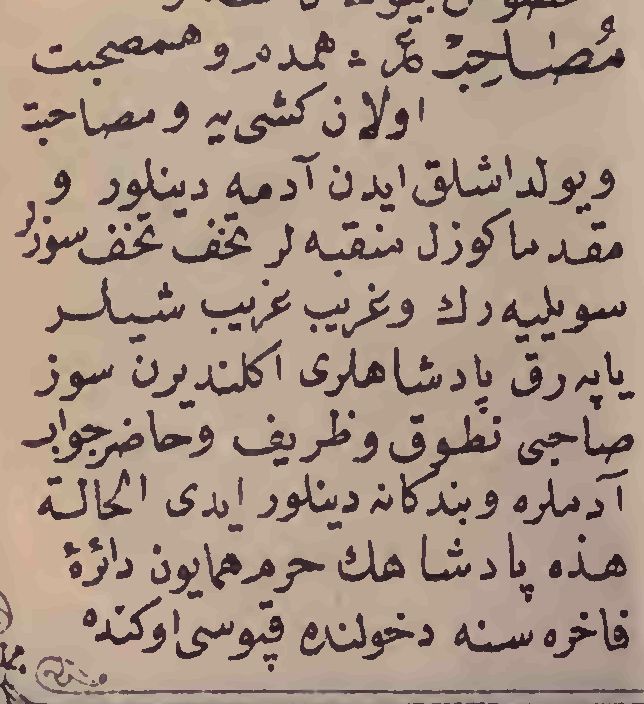 مُصَاحِبْ ع‍ : همدم و هممصحبت
اولان كشى‌يه و مصاحبة
و يولداشلق ايدن آدمه دينلور و
مقدما كوزل منقبه لر تحف تحف سوزلر
سويليه رك و غريب غريب شيلر
ياپه رق پادشاهلرى اكلنديرن سوز
صاحبى نطوق و ظريف و حاضر جواب
آدملره و بندكانه دينلور ايدى الحالة
هذه پادشاهك حرم همايون دائرۀ
فاخره سنه دخولنده قپوسى اوكنده